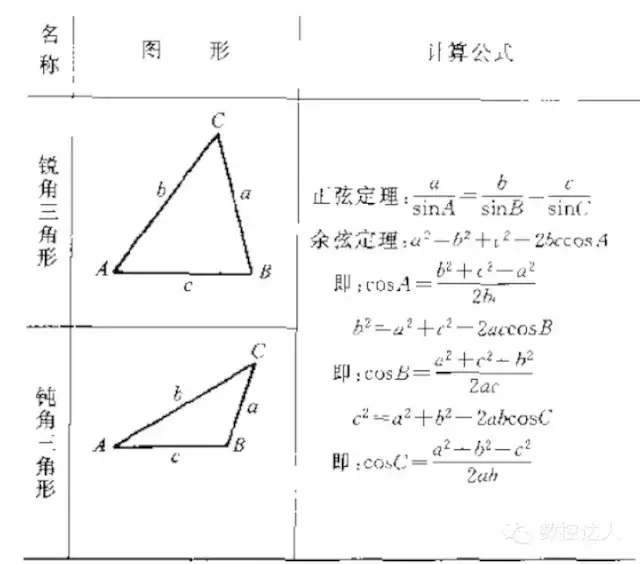 名称
图 形
计算公式
锐角三角形
C
b
a
A
B
c
正弦定理:a/sinA=b/sinB-c/sinC
余弦定理:a²-b²+c²-2bccosA
即:cosA=b²+c²-a²/2bc
b²=a²+c²-2accosB
即:cosB=a²+c²-b²/2ac
c²=a²+b²-2abcosC
即:cosC=a²-b²-c²/2ab
钝角三角形
C
b
a
A
B
c
数控达人